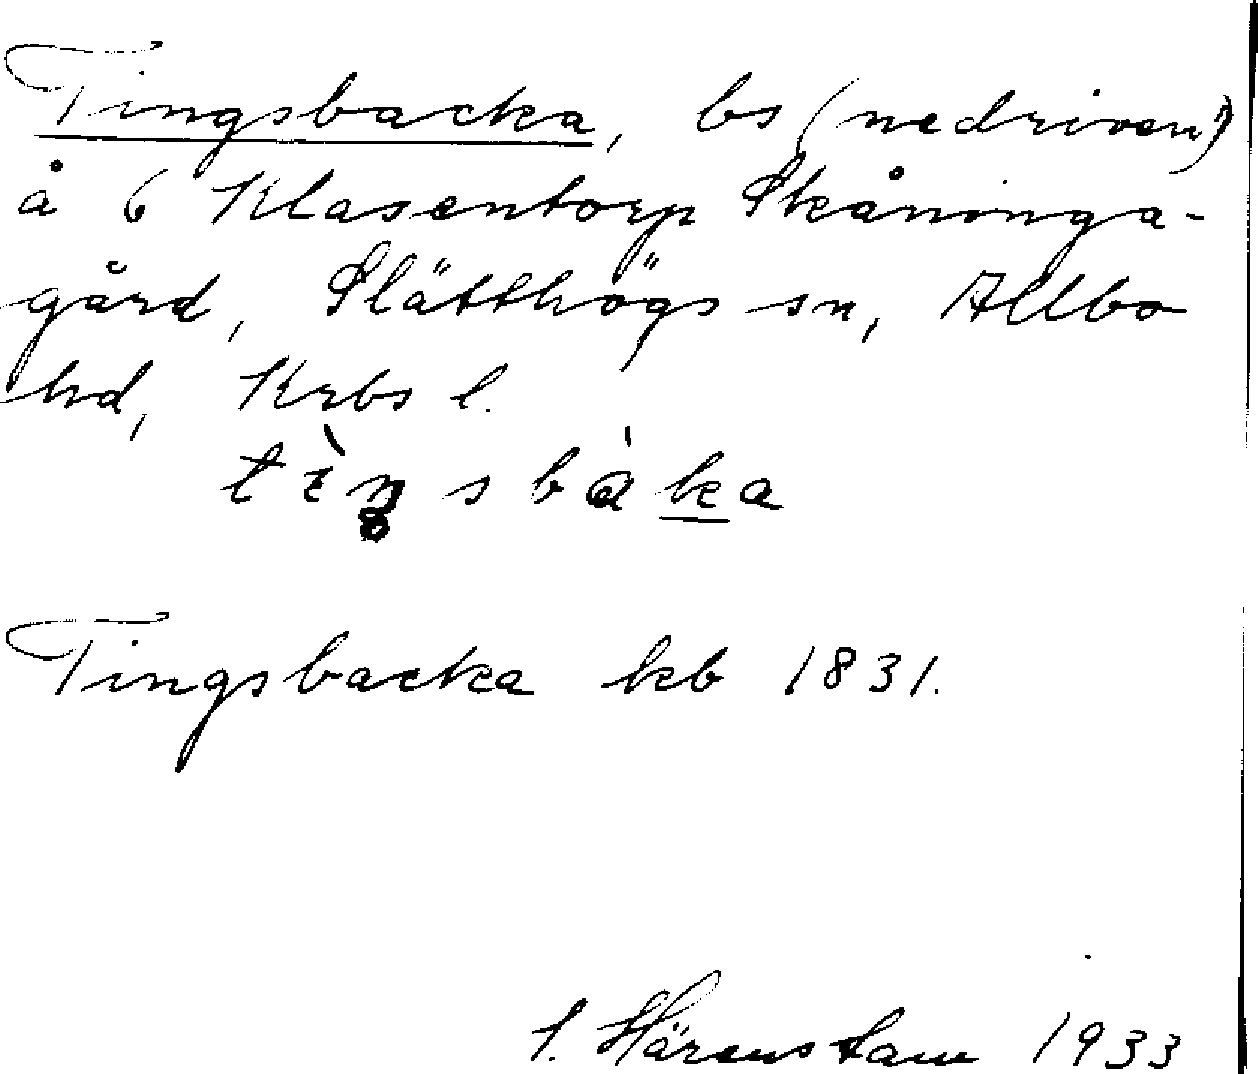 Tingsbacka, bs (nedriven)
å 6 Klasentorp Skåninga-
gård, Slätthögs sn, Allbo
hd, Krbs l.
tìŋsbàka
Tingsbacka kb 1831.
S. Härenstam 1933